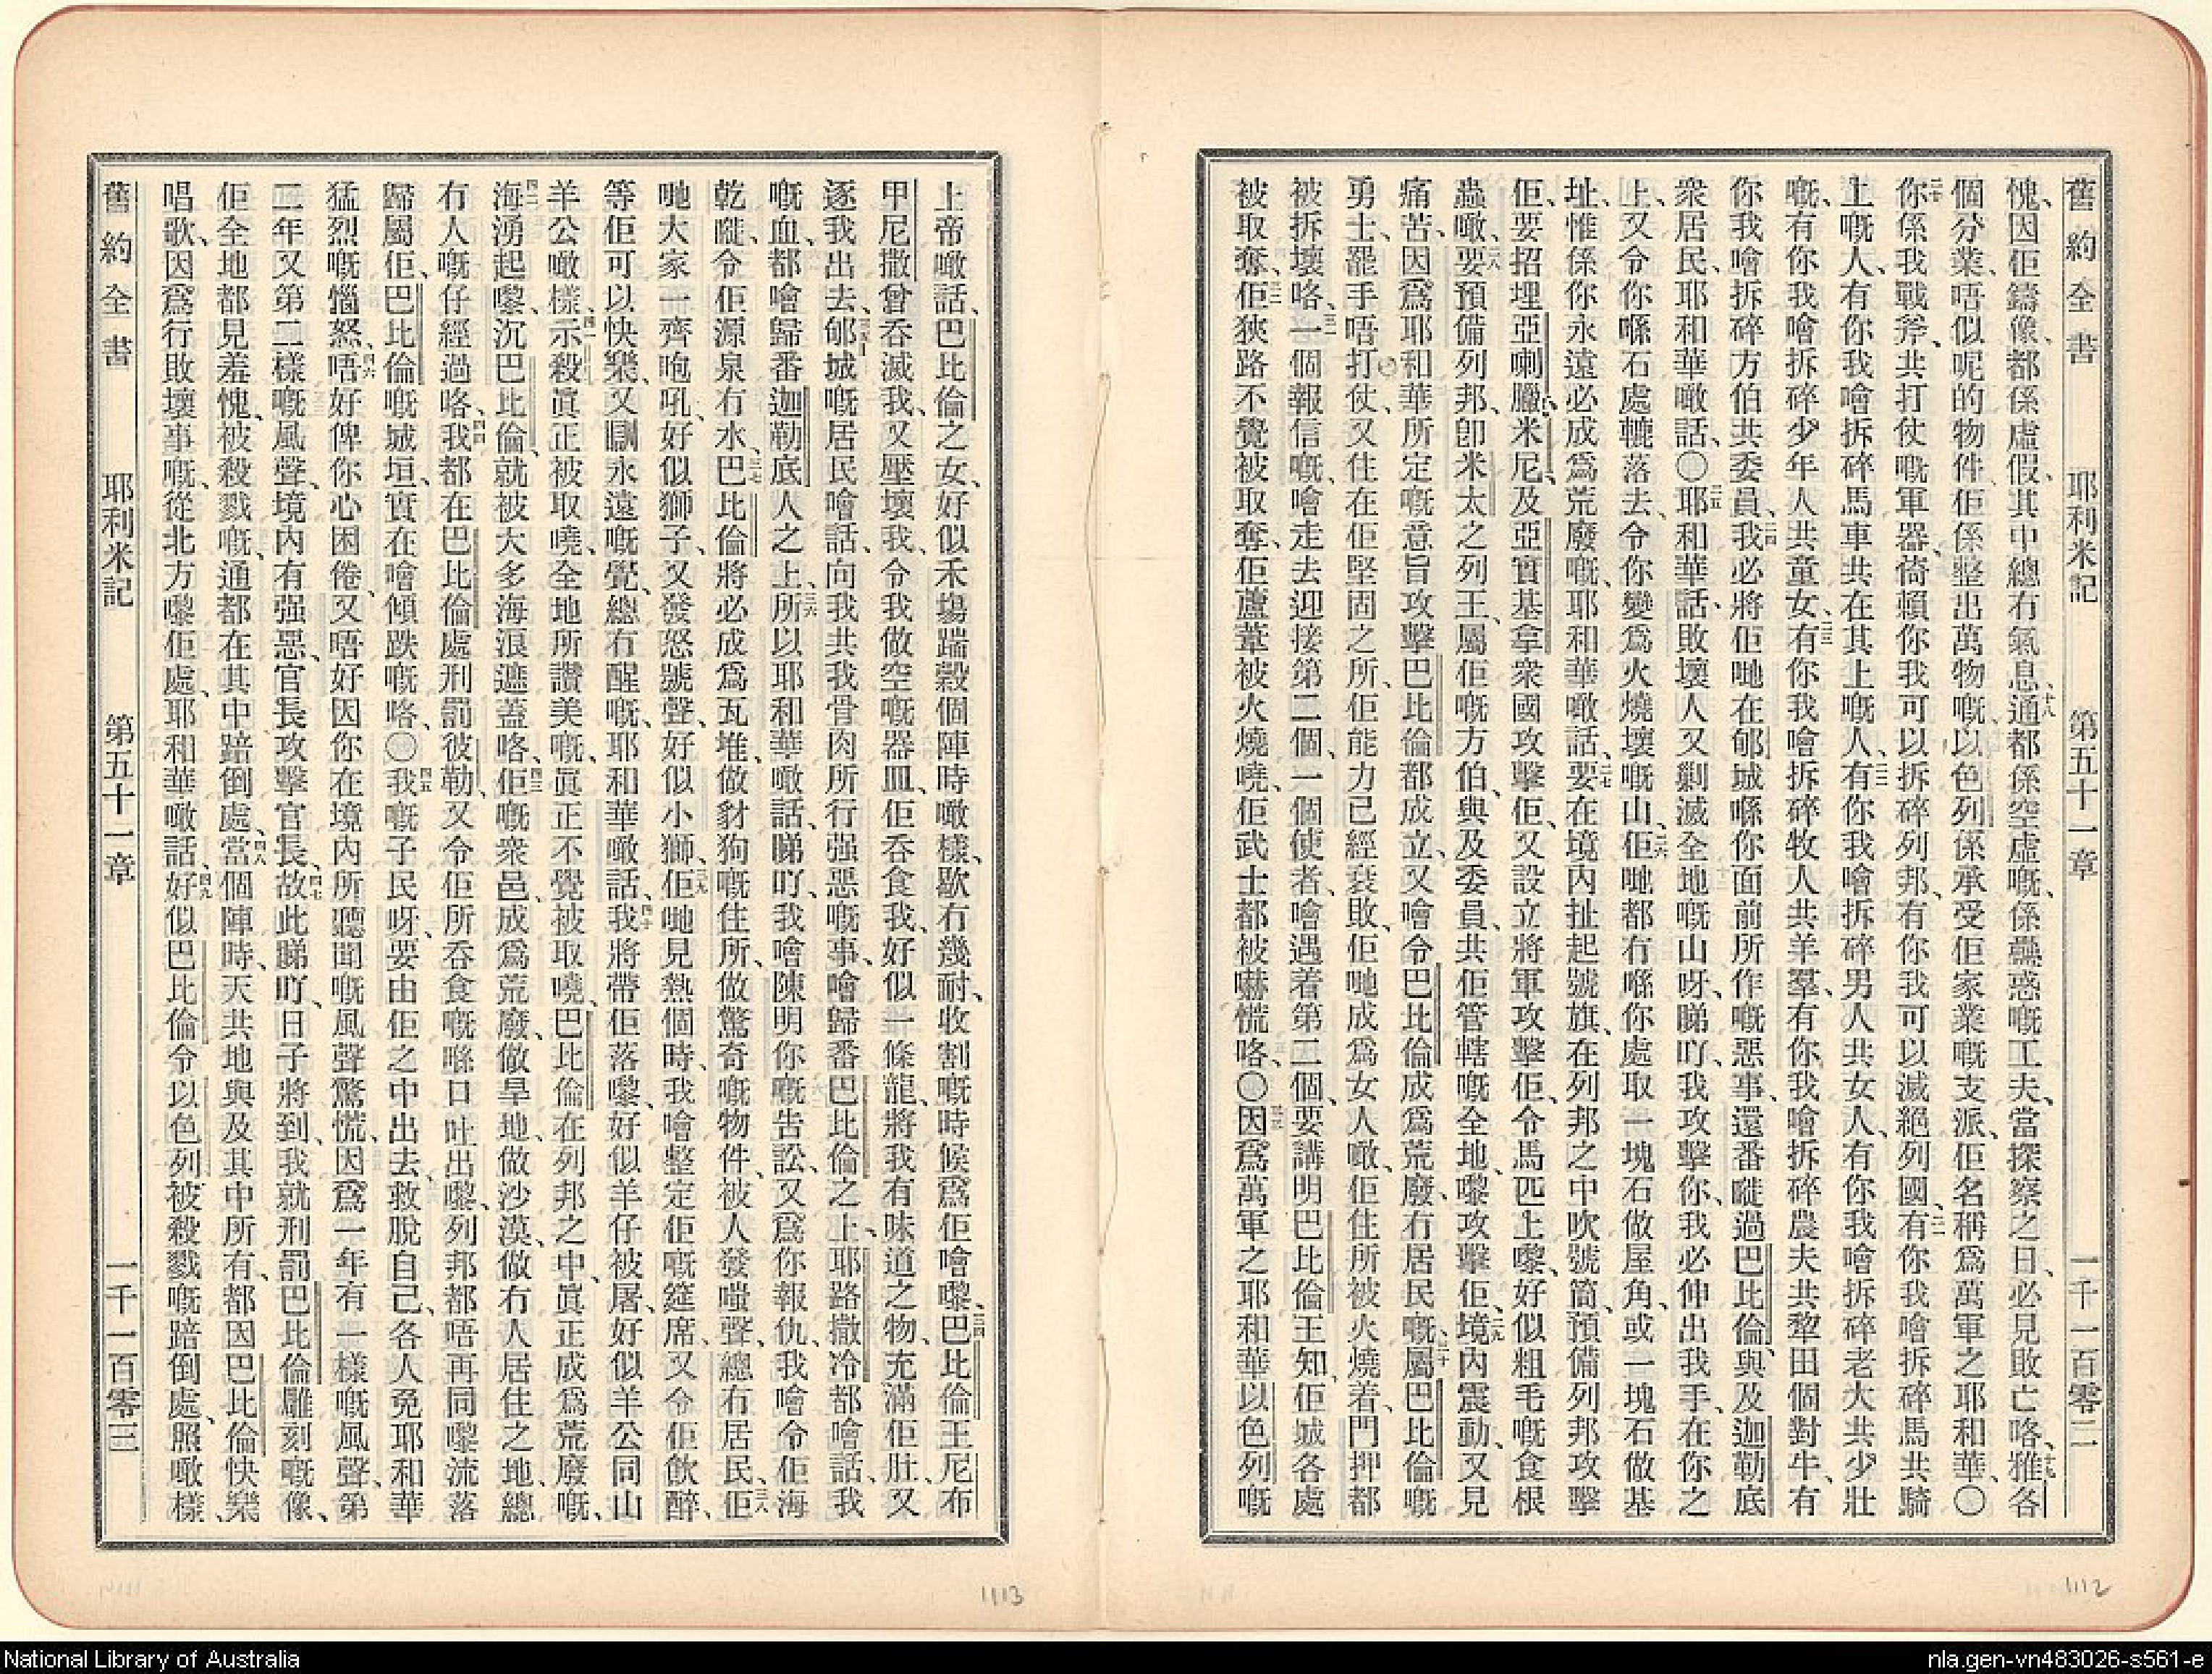 舊約全書 耶利米記 第五十一章 一千一百零二
愧、因佢鑄像、都係虛假、其中總冇氣息、十八通都係空虛嘅、係蠱惑嘅工夫、當探察之日、必見敗亡咯、十九雅各
個分業、唔似呢的物件、佢係整出萬物嘅、以色列係承受佢家業嘅支派、佢名稱為萬軍之耶和華、〇
二十你係我戰斧、共打仗嘅軍器、倚頓你我可以拆碎列邦、有你我可以滅絕列國、二一有你我噲拆碎馬共騎
上嘅人、有你我噲拆碎馬車共在其上嘅人、二二有你我噲拆碎男人共女人、有你我噲拆碎老大共少壯
嘅、有你我噲拆碎少年人共童女、二三有你我噲拆碎牧人共羊羣、有你我噲拆碎農夫共犂田個對牛、有
你我噲拆碎方伯共委員、二四我必將佢哋在郇城喺你面前所作嘅惡事、還番嚟過巴比倫、與及迦勒底
衆居民、耶和華噉話、〇二五耶和華話、敗壞人又剿滅全地嘅山呀、睇吖、我攻擊你、我必伸出我手、在你之
上、又令你喺石處轆落去、令你變為火燒壞嘅山、二六佢哋都冇喺你處取一塊石做屋角、或一塊石做基
址、惟係你永遠必成為荒廢嘅、耶和華噉話、二七要在境內扯起號旗、在列邦之中吹號筒、預備列邦攻擊
佢、要招埋亞喇臘、米尼、及亞實基拿衆國攻擊佢、又設立將軍攻擊佢、令馬匹上嚟、好似粗毛嘅食根
蟲噉、二八要預備列邦、卽米太之列王、屬佢嘅方伯、與及委員、共佢管轄嘅全地、嚟攻擊佢、二九境內震動、又見
痛苦、因為耶和華所定嘅意旨攻擊巴比倫都成立、又噲令巴比倫成為荒廢、冇居民嘅、三十屬巴比倫嘅
勇士、罷手唔打仗、又住在佢堅固之所、佢能力已經衰敗、佢哋成為女人噉、佢住所被火燒着、門押都
被拆壞咯、三一一個報信嘅、噲走去迎接第二個、一個使者、噲遇着第二個、要講明巴比倫王知、佢城各處
被取奪、三二佢狹路不覺被取奪、佢蘆葦被火燒嘵、佢武士都被嚇慌咯、〇三三因為萬軍之耶和華以色列嘅
1112
上帝噉話、巴比倫之女、好似禾塲踹穀個陣時噉樣、歇冇幾耐、收割嘅時候、為佢噲嚟、三四巴比倫王尼布
甲尼撒曾吞滅我、又壓壞我、令我做空嘅器皿、佢吞食我、好似一條龍、將我有味道之物、充滿佢肚、又
逐我出去、三五郇城嘅居民噲話、向我共我骨肉所行强惡嘅事、噲歸番巴比倫之上、耶路撒冷都噲話、我
嘅血、都噲歸番迦勒底人之上、三六所以耶和華噉話、睇吖、我噲陳明你嘅告訟、又為你報仇、我噲令佢海
乾嘥、令佢源泉冇水、三七巴比倫將必成為瓦堆、做豺狗嘅住所、做驚奇嘅物件、被人發嗤聲、總冇居民、三八佢
哋大家一齊咆吼、好似獅子、又發怒號聲、好似小獅、三九佢哋見熱個時、我噲整定佢嘅筵席、又令佢飲醉、
等佢可以快樂、又瞓永遠嘅覺、總冇醒嘅、耶和華噉話、四十我將帶佢落嚟、好似羊仔被屠、好似羊公同山
羊公噉樣、四一示殺眞正被取嘵、全地所讚美嘅、眞正不覺被取嘵、巴比倫在列邦之中、眞正成為荒廢嘅、
四二海湧起嚟、沉巴比倫、就被大多海浪遮蓋咯、四三佢嘅衆邑、成為荒廢、做旱地、做沙漠、做冇人居住之地、總
冇人嘅仔經過咯、四四我都在巴比倫處刑罰彼勒、又令佢所吞食嘅喺口吐出嚟、列邦都唔再同嚟流落
歸屬佢、巴比倫嘅城垣、實在噲傾跌嘅咯、〇四五我嘅子民呀、要由佢之中出去、救脫自己、各人免耶和華
猛烈嘅惱怒、四六唔好俾你心困倦、又唔好因你在境內所聽聞嘅風聲驚慌、因為一年有一樣嘅風聲、第
二年又第二樣嘅風聲、境內有强惡、官長攻擊官長、四七故此睇吖、日子將到、我就刑罰巴比倫雕刻嘅像、
佢全地都見羞愧、被殺戮嘅、通都在其中踣倒處、四八當個陣時、天共地與及其中所有、都因巴比倫快樂
唱歌、因為行敗壞事嘅、從北方嚟佢處、耶和華噉話、四九好似巴比倫令以色列被殺戮嘅踣倒處、照噉樣、
舊約全書 耶利米記 第五十一章 一千一百零三
1113
National Library of Australia
nla.gen-vn483026-s561-e